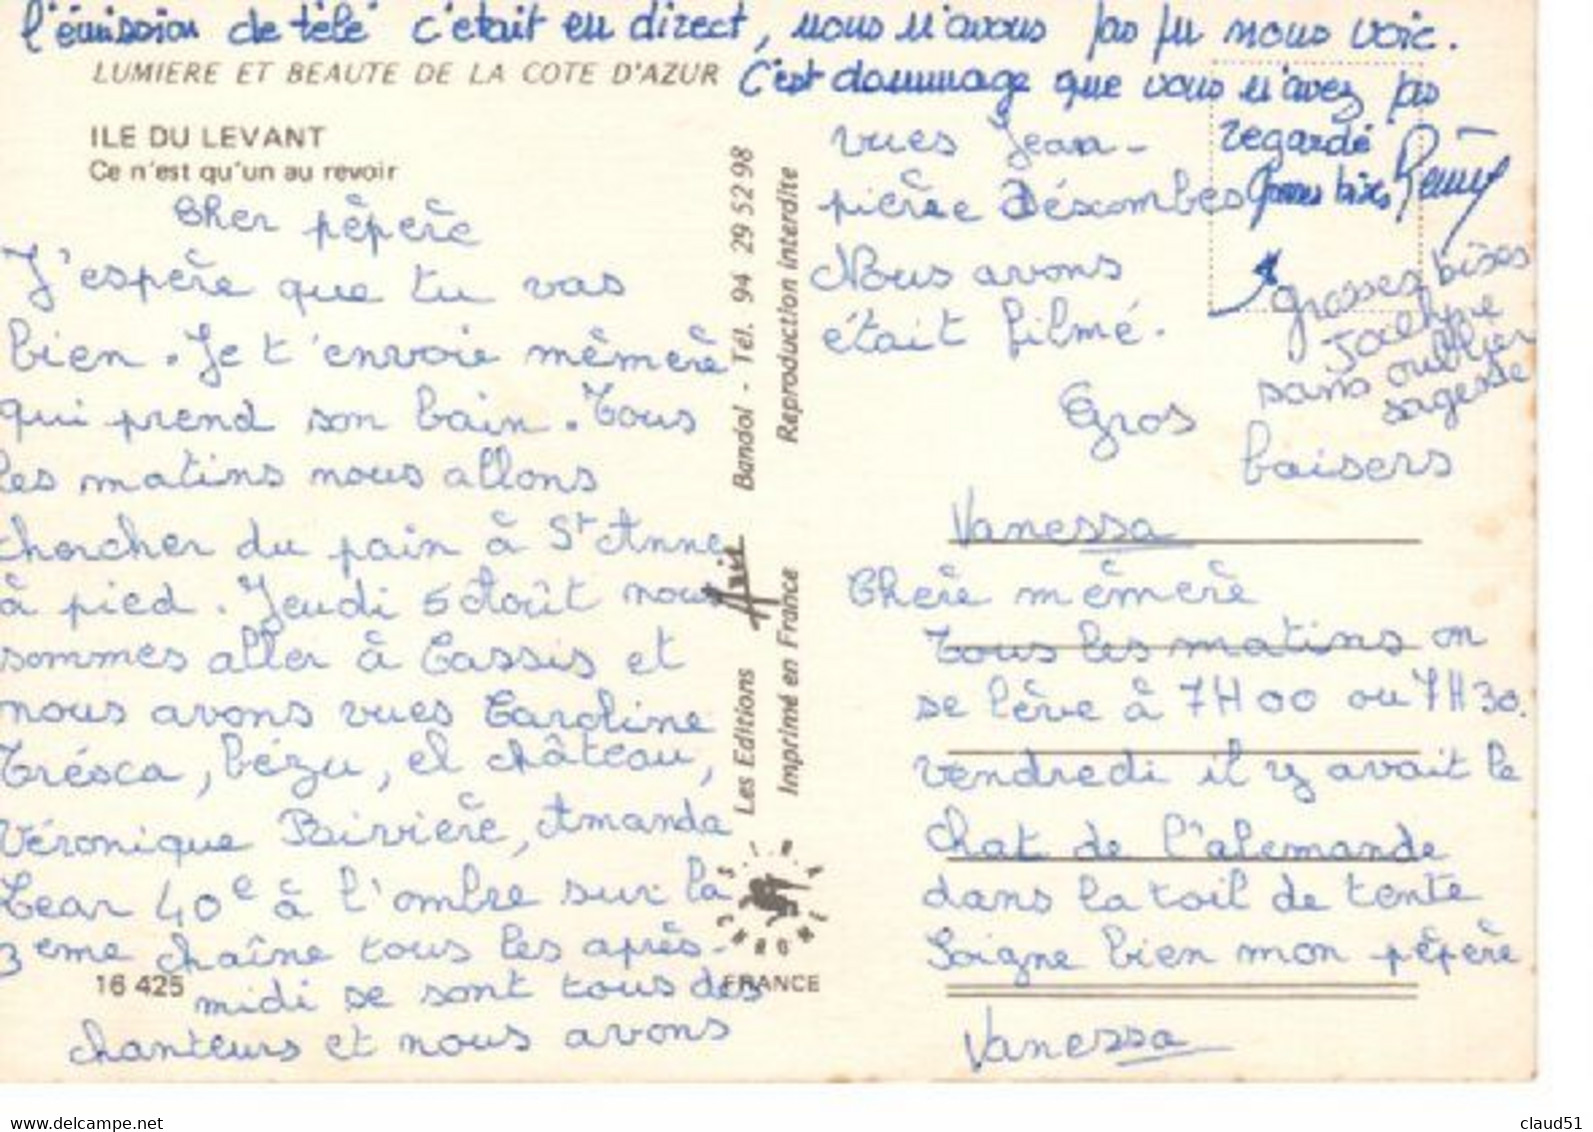 l'émission de télé c'etait en direct, nous n'avons pas pu nous voir.
C'est dommage que vous n'avez pas
regardé
Grosses bises Rémy
LUMIERE ET BEAUTE DE LA COTE D'AZUR
ILE DU LEVANT
Ce n'est qu'un au revoir
Cher pépère
J'espère que tu vas
bien. Je t'envoie mémère
qui prend son bain. Tous
les matins nous allons
chorcher du pain à St Anne
à pied. Jeudi 5 Août nous
sommes aller à Cassis et
nous avons vues Caroline
Trésca, bézu, el château,
Véronique Rivière, Amanda
Lear 40e à l'ombre sur la
3eme chaîne tous les après-
midi se sont tous des
chanteurs et nous avons
16 425
Les Editions Aris Bandol - Tél. 94 29 52 98
Imprimé en France Reproduction interdite
S.I.R.A.
CHROME
FRANCE
vues Jean-
pierre déscombes
Nous avons
était filmé.
Gros
baisers
Vanessa
grosses bises
sans oublier
sagesse
Chère mémère
Tous les matins on
se lève à 7H00 ou 7H30.
vendredi il y avait le
chat de l'alemande
dans la toil de tente
Soigne bien mon pépère
Vanessa
www.delcampe.net
claud51